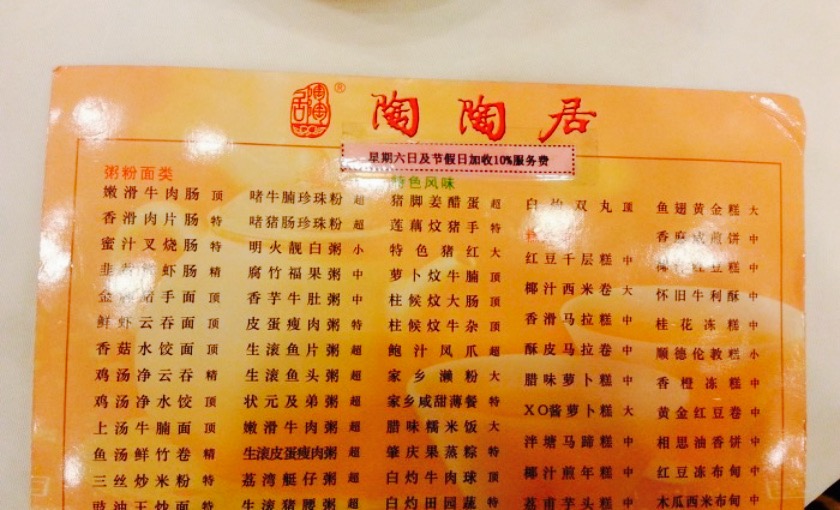 陶陶居®
陶陶居
星期六日及节假日加收10%服务费
粥粉面类
嫩滑牛肉肠 顶
香滑肉片肠 特
蜜汁叉烧肠 特
虾肠 精
手面 顶
鲜虾云吞面 顶
香菇水饺面 顶
鸡汤净云吞 精
鸡汤净水饺 顶
上汤牛腩面 顶
鱼汤鲜竹卷 精
三丝炒米粉 特
豉油王炒面
啫牛腩珍珠粉 超
啫猪肠珍珠粉 超
明火靓白粥 小
腐竹福果粥 中
香芋牛肚粥 中
皮蛋瘦肉粥 特
生滚鱼片粥 超
生滚鱼头粥 超
状元及弟粥 超
嫩滑牛肉粥 超
生滚皮蛋瘦肉粥 超
荔湾艇仔粥 超
生滚猪腰粥 超
特色风味
猪脚姜醋蛋 超
莲藕炆猪手 特
特色猪红 大
萝卜炆牛腩 顶
柱候炆大肠 顶
柱候炆牛杂 顶
鲍汁凤爪 超
家乡濑粉 大
家乡咸甜薄餐 特
腊味糯米饭 大
肇庆果蒸粽 特
白灼牛肉球 顶
白灼田园蔬 特
白灼双丸 顶
红豆千层糕 中
椰汁西米卷 大
香滑马拉糕 中
酥皮马拉卷 中
腊味萝卜糕 中
XO酱萝卜糕 大
泮塘马蹄糕 中
椰汁煎年糕 中
荔甫芋头糕 中
鱼翅黄金糕 大
香麻咸煎饼 中
红豆糕 中
怀旧牛利酥 中
桂花冻糕 中
顺德伦教糕 小
香橙冻糕 中
黄金红豆卷 中
相思油香饼 中
红豆冻布甸 中
木瓜西米布甸 中